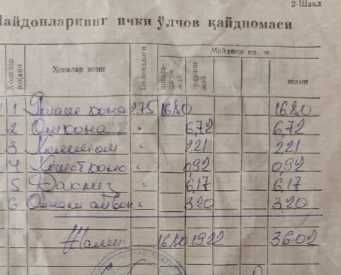 2-Шакл
Майдонларнинг ички ўлчов қайдномаси
Хоналар номи
Майдони кв. м.
жами
1 Яшаш хона 2.75 16.80 16.80
2 Ошхона " 6.72 6.72
3 " 2.21 2.21
4 " 0,92 0,92
5 Дахлиз " 6,17 6,17
6 айвон " 3.20 3.20
Жами 16.80 19.22 36.02